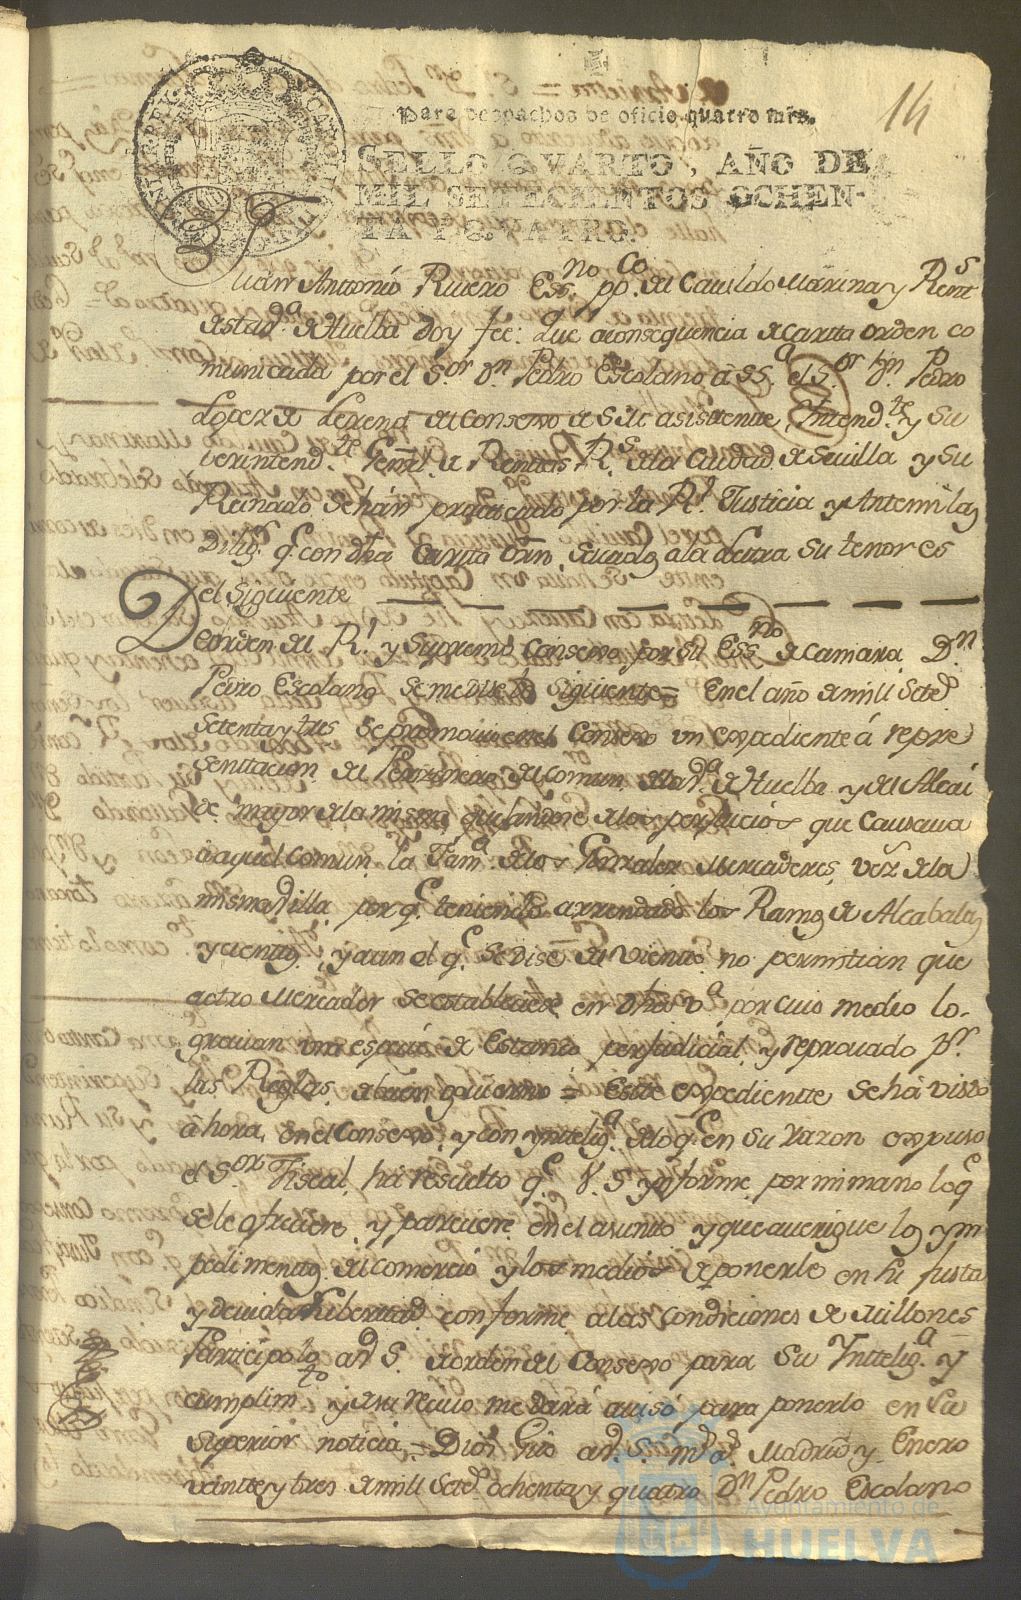 14
Para despachos de oficio quatro mrs.
SELLO QVARTO, AÑO DE
MIL SETECIENTOS OCHEN-
TA Y QVATRO.
Juan Anttonio Rivero Essno. ppco. del Cavildo Marina y Rents
de esta va. de Huelba Doy fee: Que a consequencia de carta orden co
municada por el Sor. Dn. Pedro Escolano a SSa. el Sor. Dn. Pedro
Lopez de Lerena del Consexo de S.M. asisttente, Intendte. y Su
perintendte. Genrl. de Renttas Rs. de la Ciudad de Sevilla y su
Reinado se han practicado por la Rl. Justicia y Antemi las
Dilig.s q.e con dha Cartta orn. sacadas a la letra su tenor es
el Siguiente
De orden del Rl. y Supremo Consexo por su Essno. de Camara Dn.
Pedro Escolano se me dize lo siguiente = En el año de mill Setes.
Setenta y tres se promovio en el Consexo un expediente á repre
senttacion del Personero del comun de la va. de Huelba y del Alcal
de mayor de la misma quejandose de los perjuicios que causava
a aquel comun la Fama. de los Gonzalez Mercaderes, vezs. de la
misma Villa por q.e teniendo arrendado los Ramos de Alcabalas
y cientos, y aun el q.e se dise del viento no permitian que
otro Mercader se estableciese en dha va. por cuio medio lo-
gravan una especie de Estanco perjudicial y reprovado pr.
las Reglas de buen govierno = Este expediente se há visto
ahora en el Consexo y con ynteliga. de lo q.e en su razon expuso
el Sor. Fiscal, há resuelto q.e V.S. ynforme por mi mano lo q.e
se le ofreciere y pareciere en el asunto y que averigue los ym
pedimentos del comercio y los medios de ponerle en su justa
y devida Libertad conforme a las condiciones de Millones
Participolo a V.S. de orden del Consexo para su Ynteliga. y
cumplimto. y de su recivo me dará aviso para ponerlo en la
Superior noticia = Dios Gue a V.S. ms. as. Madrid y Enero
veinte y tres de mill Sete. ochenta y quatro Dn. Pedro Escolano
Ayuntamiento de
HUELVA